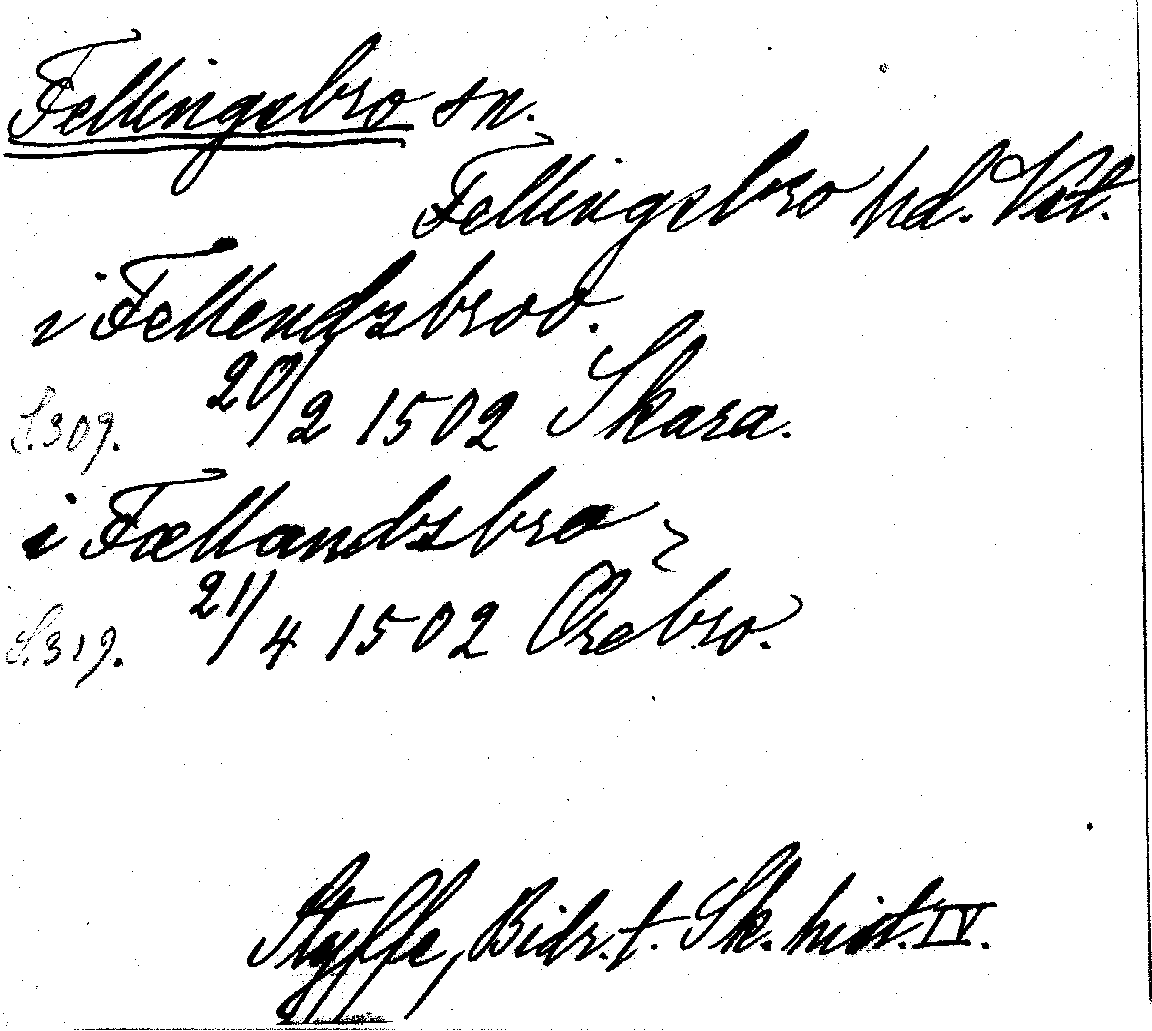 Fellingsbro sn.
Fellingsbro hd. Vstl.
i Fellendzbroo.
S. 309. 20/2 1502 Skara.
i Fællandzbro
S. 319. 21/4 1502 Örebro.
Styffe, Bidr. t. Sk. hist. IV.